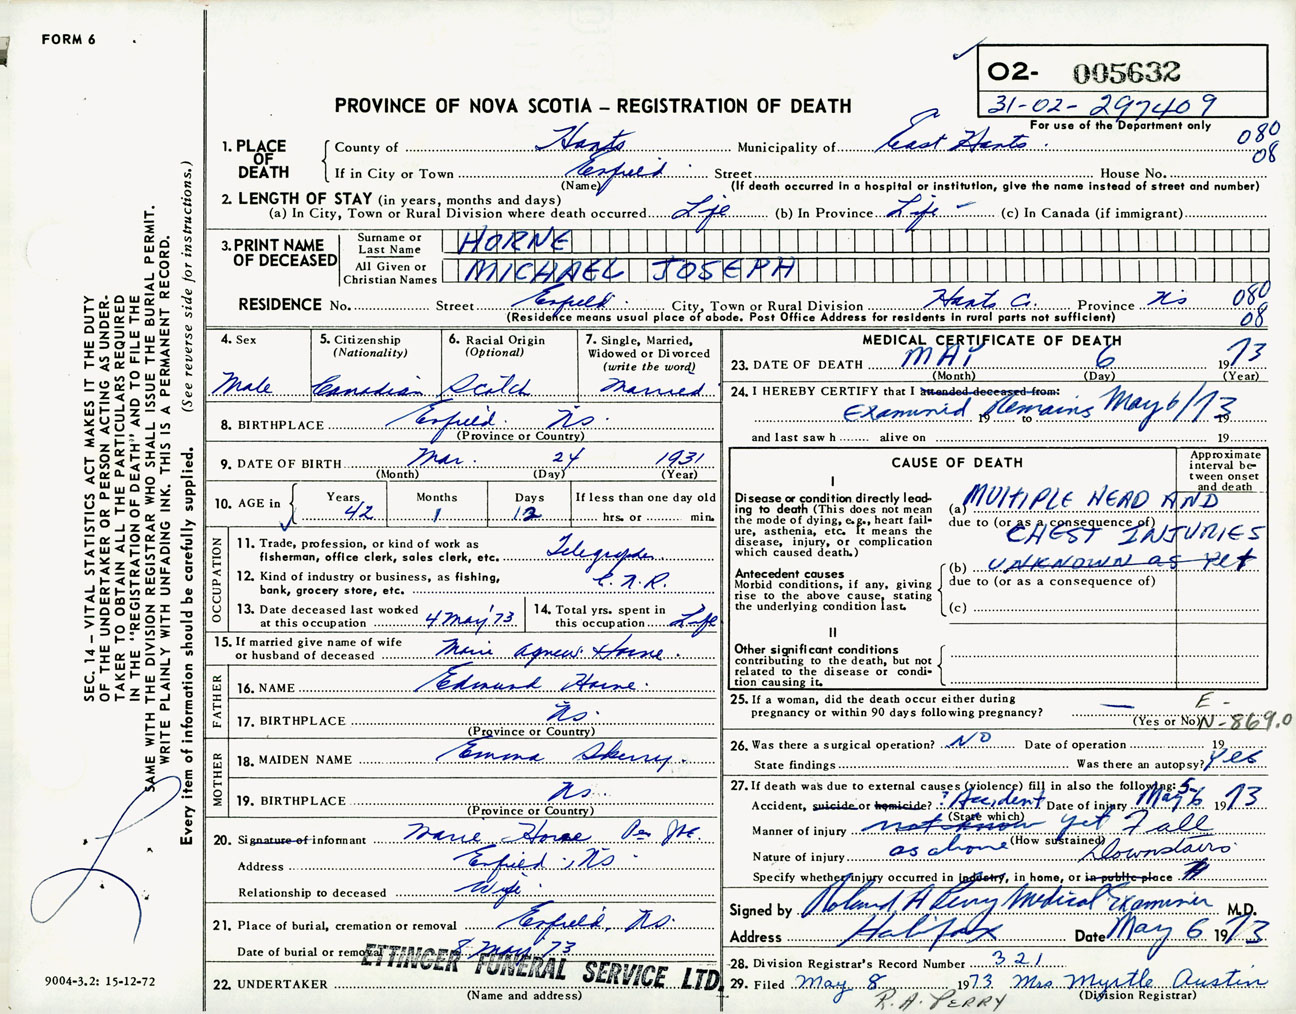 FORM 6
O2- 005632
31-02-297409
For use of the Department only
PROVINCE OF NOVA SCOTIA – REGISTRATION OF DEATH
1. PLACE OF DEATH
County of Hants Municipality of East Hants. 080
08
If in City or Town Enfield Street House No.
(Name) (If death occurred in a hospital or institution, give the name instead of street and number)
2. LENGTH OF STAY (in years, months and days)
(a) In City, Town or Rural Division where death occurred Life (b) In Province Life – (c) In Canada (if immigrant)
3. PRINT NAME OF DECEASED
Surname or Last Name HORNE
All Given or Christian Names MICHAEL JOSEPH
RESIDENCE No. Street Enfield City, Town or Rural Division Hants Co. Province NS 080
(Residence means usual place of abode. Post Office Address for residents in rural parts not sufficient) 08
4. Sex Male
5. Citizenship (Nationality) Canadian
6. Racial Origin (Optional) Scotch
7. Single, Married, Widowed or Divorced (write the word) Married
8. BIRTHPLACE Enfield. NS.
(Province or Country)
9. DATE OF BIRTH Mar. 24 1931
(Month) (Day) (Year)
10. AGE in Years Months Days If less than one day old
42 1 12 hrs. or min.
OCCUPATION
11. Trade, profession, or kind of work as fisherman, office clerk, sales clerk, etc. Telegrapher
12. Kind of industry or business, as fishing, bank, grocery store, etc. C.N.R.
13. Date deceased last worked at this occupation 4 May '73
14. Total yrs. spent in this occupation Life
15. If married give name of wife or husband of deceased Marie Agnew Horne.
FATHER
16. NAME Edmund Horne.
17. BIRTHPLACE NS.
(Province or Country)
MOTHER
18. MAIDEN NAME Emma Skerry.
19. BIRTHPLACE NS.
(Province or Country)
20. Signature of informant Marie Horne Per
Address Enfield, NS.
Relationship to deceased Wife
21. Place of burial, cremation or removal Enfield, NS.
Date of burial or removal 8 May, 73
ETTINGER FUNERAL SERVICE LTD.
22. UNDERTAKER
(Name and address)
MEDICAL CERTIFICATE OF DEATH
23. DATE OF DEATH MAY 6 1973
(Month) (Day) (Year)
24. I HEREBY CERTIFY that I attended deceased from:
Examined Remains May 6/73
19 to 19
and last saw h alive on 19
CAUSE OF DEATH
Approximate interval between onset and death
I
Disease or condition directly leading to death (This does not mean the mode of dying, e.g., heart failure, asthenia, etc. It means the disease, injury, or complication which caused death.)
(a) MULTIPLE HEAD AND
due to (or as a consequence of)
CHEST INJURIES
Antecedent causes
Morbid conditions, if any, giving rise to the above cause, stating the underlying condition last.
(b) UNKNOWN as yet
due to (or as a consequence of)
(c)
II
Other significant conditions
contributing to the death, but not related to the disease or condition causing it.
25. If a woman, did the death occur either during pregnancy or within 90 days following pregnancy? —
(Yes or No)
E-
N-869.0
26. Was there a surgical operation? NO Date of operation 19
State findings Was there an autopsy? Yes
27. If death was due to external causes (violence) fill in also the following:
Accident, suicide or homicide? ? Accident Date of injury May 6 5 1973
(State which)
Manner of injury not know yet Fall
(How sustained)
Nature of injury as above Downstairs
Specify whether injury occurred in industry, in home, or in public place
Signed by Roland A Perry Medical Examiner M.D.
Address Halifax Date May 6 1973
28. Division Registrar's Record Number 321
29. Filed May 8 1973 Mrs Myrtle Austin
(Division Registrar)
R.A. PERRY
SEC. 14 – VITAL STATISTICS ACT MAKES IT THE DUTY
OF THE UNDERTAKER OR PERSON ACTING AS UNDER-
TAKER TO OBTAIN ALL THE PARTICULARS REQUIRED
IN THE "REGISTRATION OF DEATH" AND TO FILE THE
SAME WITH THE DIVISION REGISTRAR WHO SHALL ISSUE THE BURIAL PERMIT.
WRITE PLAINLY WITH UNFADING INK. THIS IS A PERMANENT RECORD.
Every item of information should be carefully supplied. (See reverse side for instructions.)
9004-3.2: 15-12-72